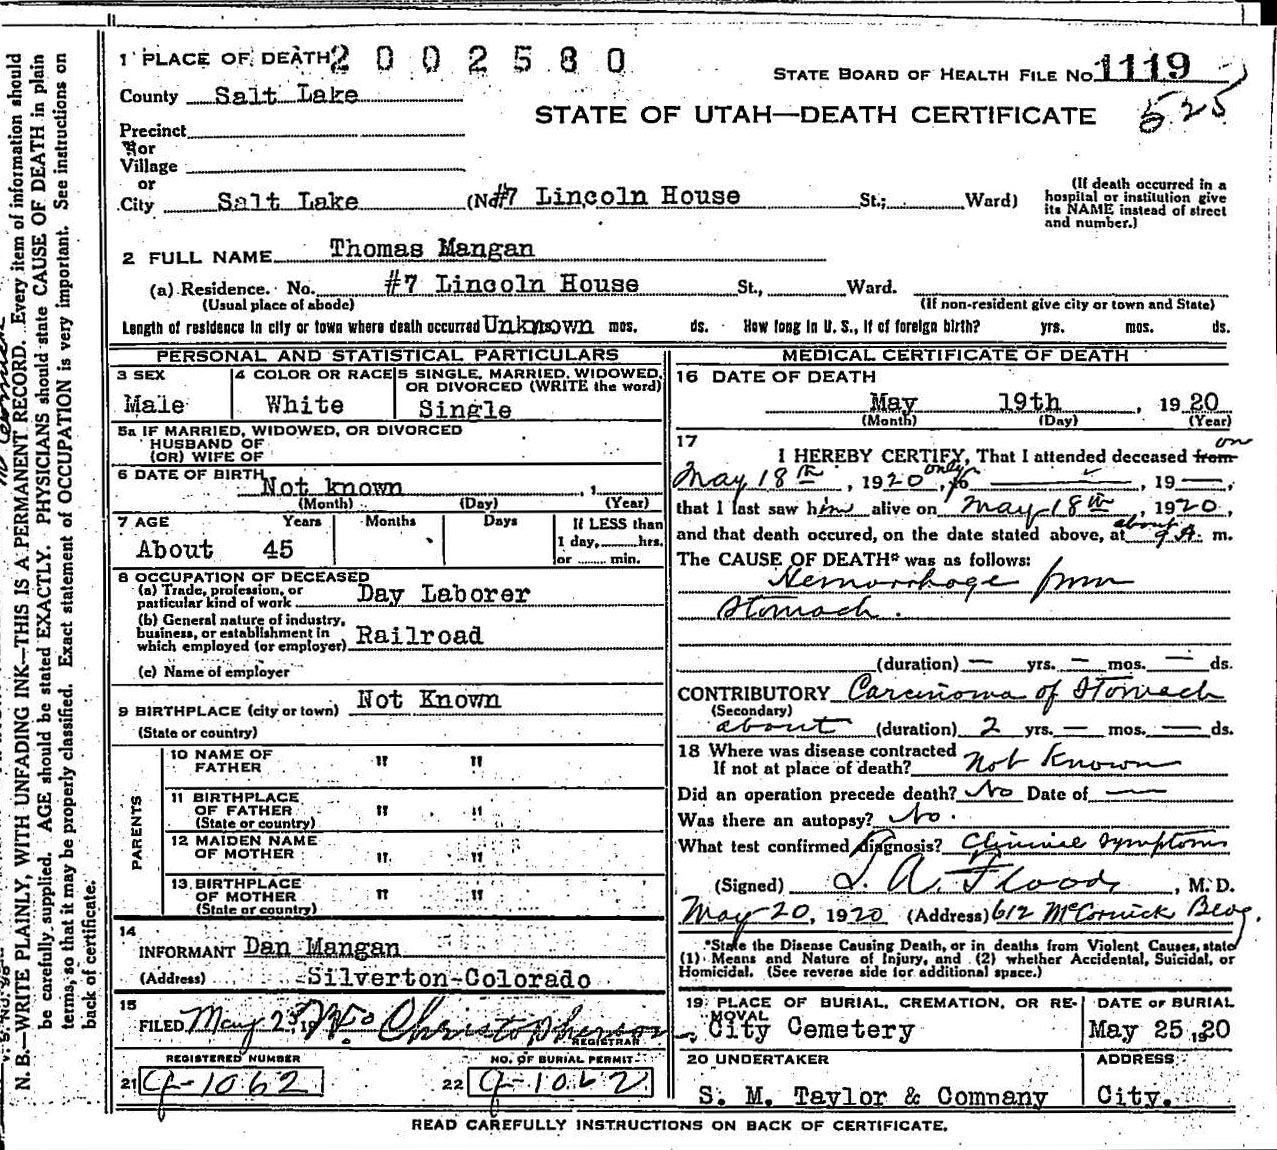 1 PLACE OF DEATH 2002580
STATE BOARD OF HEALTH FILE No. 1119
County Salt Lake
STATE OF UTAH—DEATH CERTIFICATE 525
Precinct
or
Village
or
City Salt Lake (No. #7 Lincoln House St.; Ward)
(If death occurred in a hospital or institution give its NAME instead of street and number.)
2 FULL NAME Thomas Mangan
(a) Residence. No. #7 Lincoln House St., Ward.
(Usual place of abode) (If non-resident give city or town and State)
Length of residence in city or town where death occurred Unknown mos. ds. How long in U. S., if of foreign birth? yrs. mos. ds.
PERSONAL AND STATISTICAL PARTICULARS
3 SEX
Male
4 COLOR OR RACE
White
5 SINGLE, MARRIED, WIDOWED, OR DIVORCED (WRITE the word)
Single
5a IF MARRIED, WIDOWED, OR DIVORCED
HUSBAND OF
(OR) WIFE OF
6 DATE OF BIRTH Not known , 1
(Month) (Day) (Year)
7 AGE Years Months Days If LESS than
About 45 1 day, hrs.
or min.
8 OCCUPATION OF DECEASED
(a) Trade, profession, or
particular kind of work Day Laborer
(b) General nature of industry,
business, or establishment in
which employed (or employer) Railroad
(c) Name of employer
9 BIRTHPLACE (city or town) Not Known
(State or country)
PARENTS
10 NAME OF FATHER " "
11 BIRTHPLACE OF FATHER " "
(State or country)
12 MAIDEN NAME OF MOTHER " "
13 BIRTHPLACE OF MOTHER " "
(State or country)
14
INFORMANT Dan Mangan
(Address) Silverton-Colorado
15
FILED May 25 Christopherson
REGISTRAR
REGISTERED NUMBER NO. OF BURIAL PERMIT
21 G-1062 22 G-1062
MEDICAL CERTIFICATE OF DEATH
16 DATE OF DEATH
May 19th , 1920
(Month) (Day) (Year)
17
I HEREBY CERTIFY, That I attended deceased from on
May 18th , 1920 only, to — , 19 — ,
that I last saw him alive on May 18th , 1920,
and that death occured, on the date stated above, at about 9 A. m.
The CAUSE OF DEATH* was as follows:
Hemorrhage from
Stomach.
(duration) — yrs. — mos. — ds.
CONTRIBUTORY Carcinoma of Stomach
(Secondary)
about (duration) 2 yrs. — mos. — ds.
18 Where was disease contracted
If not at place of death? Not Known
Did an operation precede death? No Date of —
Was there an autopsy? No.
What test confirmed diagnosis? Clinical Symptoms
(Signed) Flood , M. D.
May 20, 1920 (Address) 612 McCornick Bldg.
*State the Disease Causing Death, or in deaths from Violent Causes, state
(1) Means and Nature of Injury, and (2) whether Accidental, Suicidal, or
Homicidal. (See reverse side for additional space.)
19 PLACE OF BURIAL, CREMATION, OR REMOVAL
City Cemetery
DATE OF BURIAL
May 25, 1920
20 UNDERTAKER
S. M. Taylor & Company
ADDRESS
City.
READ CAREFULLY INSTRUCTIONS ON BACK OF CERTIFICATE.
N. B.—WRITE PLAINLY, WITH UNFADING INK—THIS IS A PERMANENT RECORD. Every item of information should
be carefully supplied. AGE should be stated EXACTLY. PHYSICIANS should state CAUSE OF DEATH in plain
terms, so that it may be properly classified. Exact statement of OCCUPATION is very important. See instructions on
back of certificate.